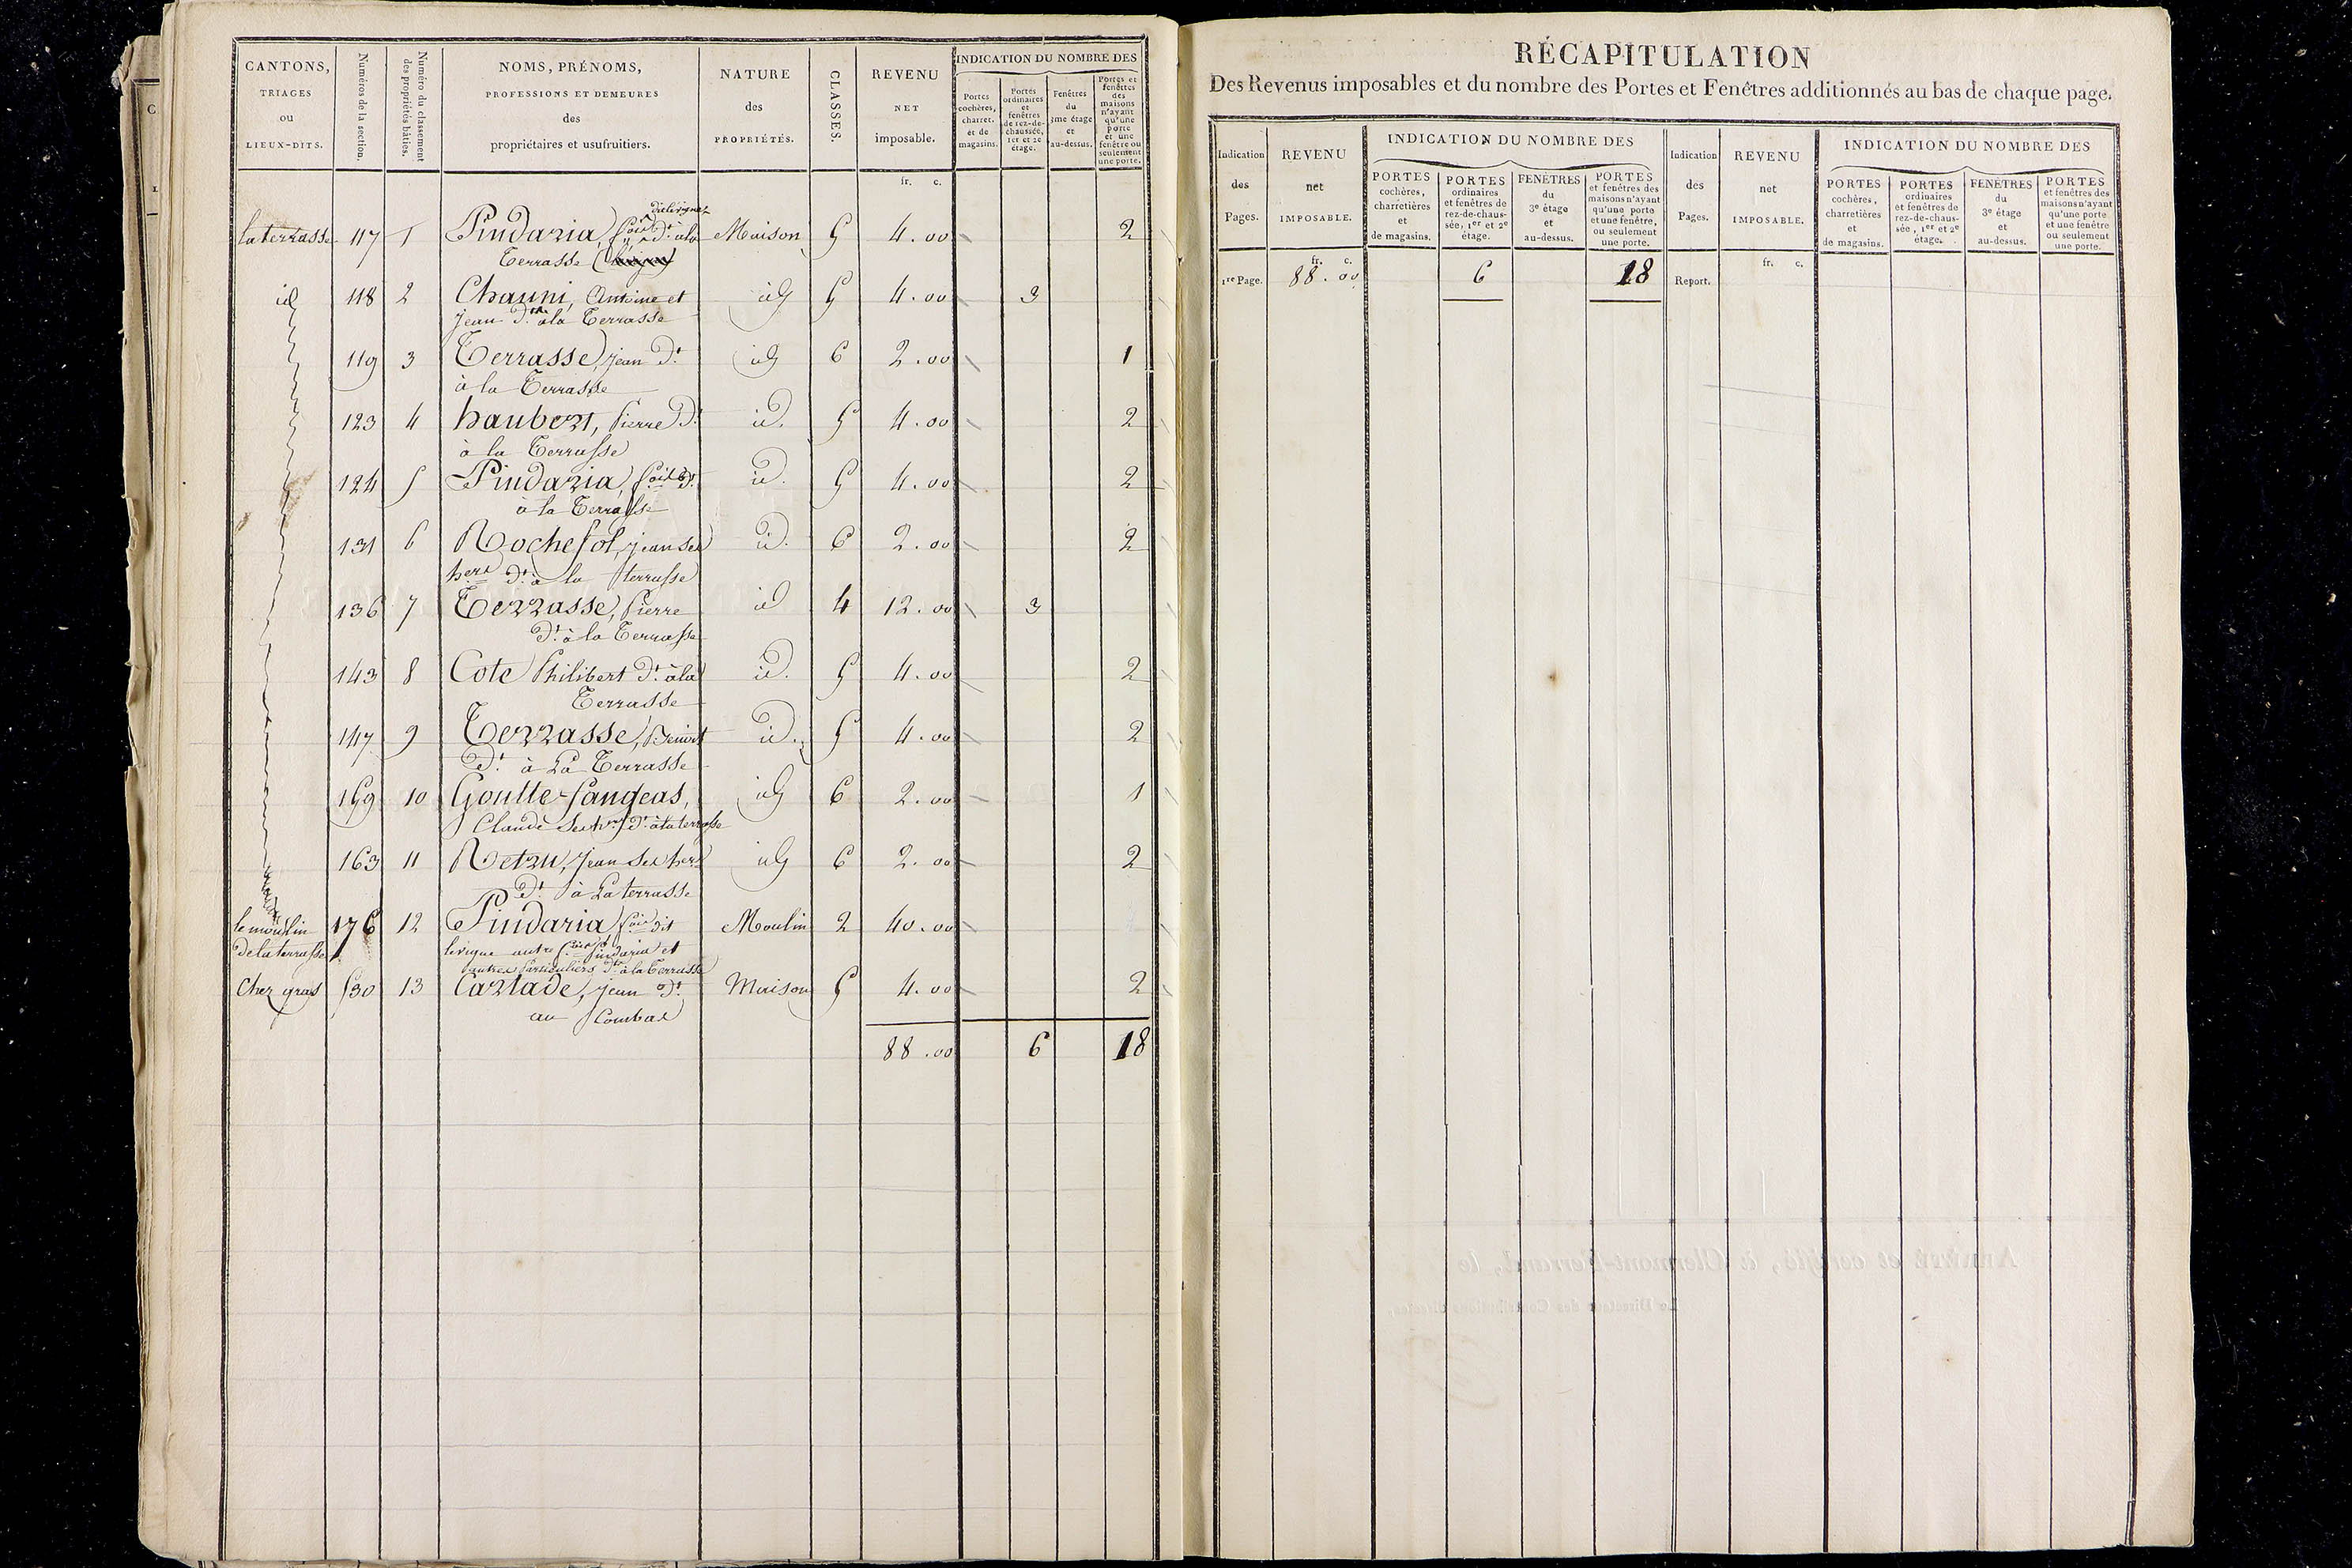 CANTONS, TRIAGES ou LIEUX-DITS.
Numéros de la section.
Numéro du classement des propriétés bâties.
NOMS, PRÉNOMS, PROFESSIONS ET DEMEURES des propriétaires et usufruitiers.
NATURE des PROPRIÉTÉS.
CLASSES.
REVENU NET imposable.
INDICATION DU NOMBRE DES
Portes cochères, charret. et de magasins.
Portes ordinaires et fenêtres de rez-de-chaussée, 1er et 2e étage.
Fenêtres du 3me étage et au-dessus.
Portes et fenêtres des maisons n'ayant qu'une porte et une fenêtre ou seulement une porte.
fr. c.
la terrasse 117 1 Pindaria, dt à la Maison 5 4.00 2
Terrasse
id 118 2 Chauni, Antoine et id 5 4.00 3
jean dt à la Terrasse
119 3 Terrasse, jean dt id 6 2.00 1
à la Terrasse
123 4 haubert, Pierre dt id. 5 4.00 2
à la Terrasse
124 5 Pindaria, dt id. 5 4.00 2
à la Terrasse
131 6 Rochefol, jean ses id. 6 2.00 2
hers dt à la terrasse
136 7 Terrasse, Pierre id 4 12.00 3
dt à la Terrasse
143 8 Cote Philibert dt à la id. 5 4.00 2
Terrasse
147 9 Terrasse, Benoit id. 5 4.00 2
dt à La Terrasse
159 10 Goutte-fangeas, id 6 2.00 1
Claude ses hers dt à la terrasse
163 11 Retru, jean ses hers id 6 2.00 2
dt à La terrasse
le moulin 176 12 Pindaria dit Moulin 2 40.00
de la terrasse livigne autre Pindaria et
autres particuliers dt à la Terrasse
Chez gras 530 13 Cartade, jean dt Maison 5 4.00 2
au Combas
88.00 6 18
RÉCAPITULATION
Des Revenus imposables et du nombre des Portes et Fenêtres additionnés au bas de chaque page.
Indication des Pages.
REVENU net IMPOSABLE.
INDICATION DU NOMBRE DES
PORTES cochères, charretières et de magasins.
PORTES ordinaires et fenêtres de rez-de-chaussée, 1er et 2e étage.
FENÊTRES du 3e étage et au-dessus.
PORTES et fenêtres des maisons n'ayant qu'une porte et une fenêtre, ou seulement une porte.
Indication des Pages.
REVENU net IMPOSABLE.
INDICATION DU NOMBRE DES
PORTES cochères, charretières et de magasins.
PORTES ordinaires et fenêtres de rez-de-chaussée, 1er et 2e étage.
FENÊTRES du 3e étage et au-dessus.
PORTES et fenêtres des maisons n'ayant qu'une porte et une fenêtre ou seulement une porte.
fr. c. fr. c.
1re Page. 88.00 6 18 Report.